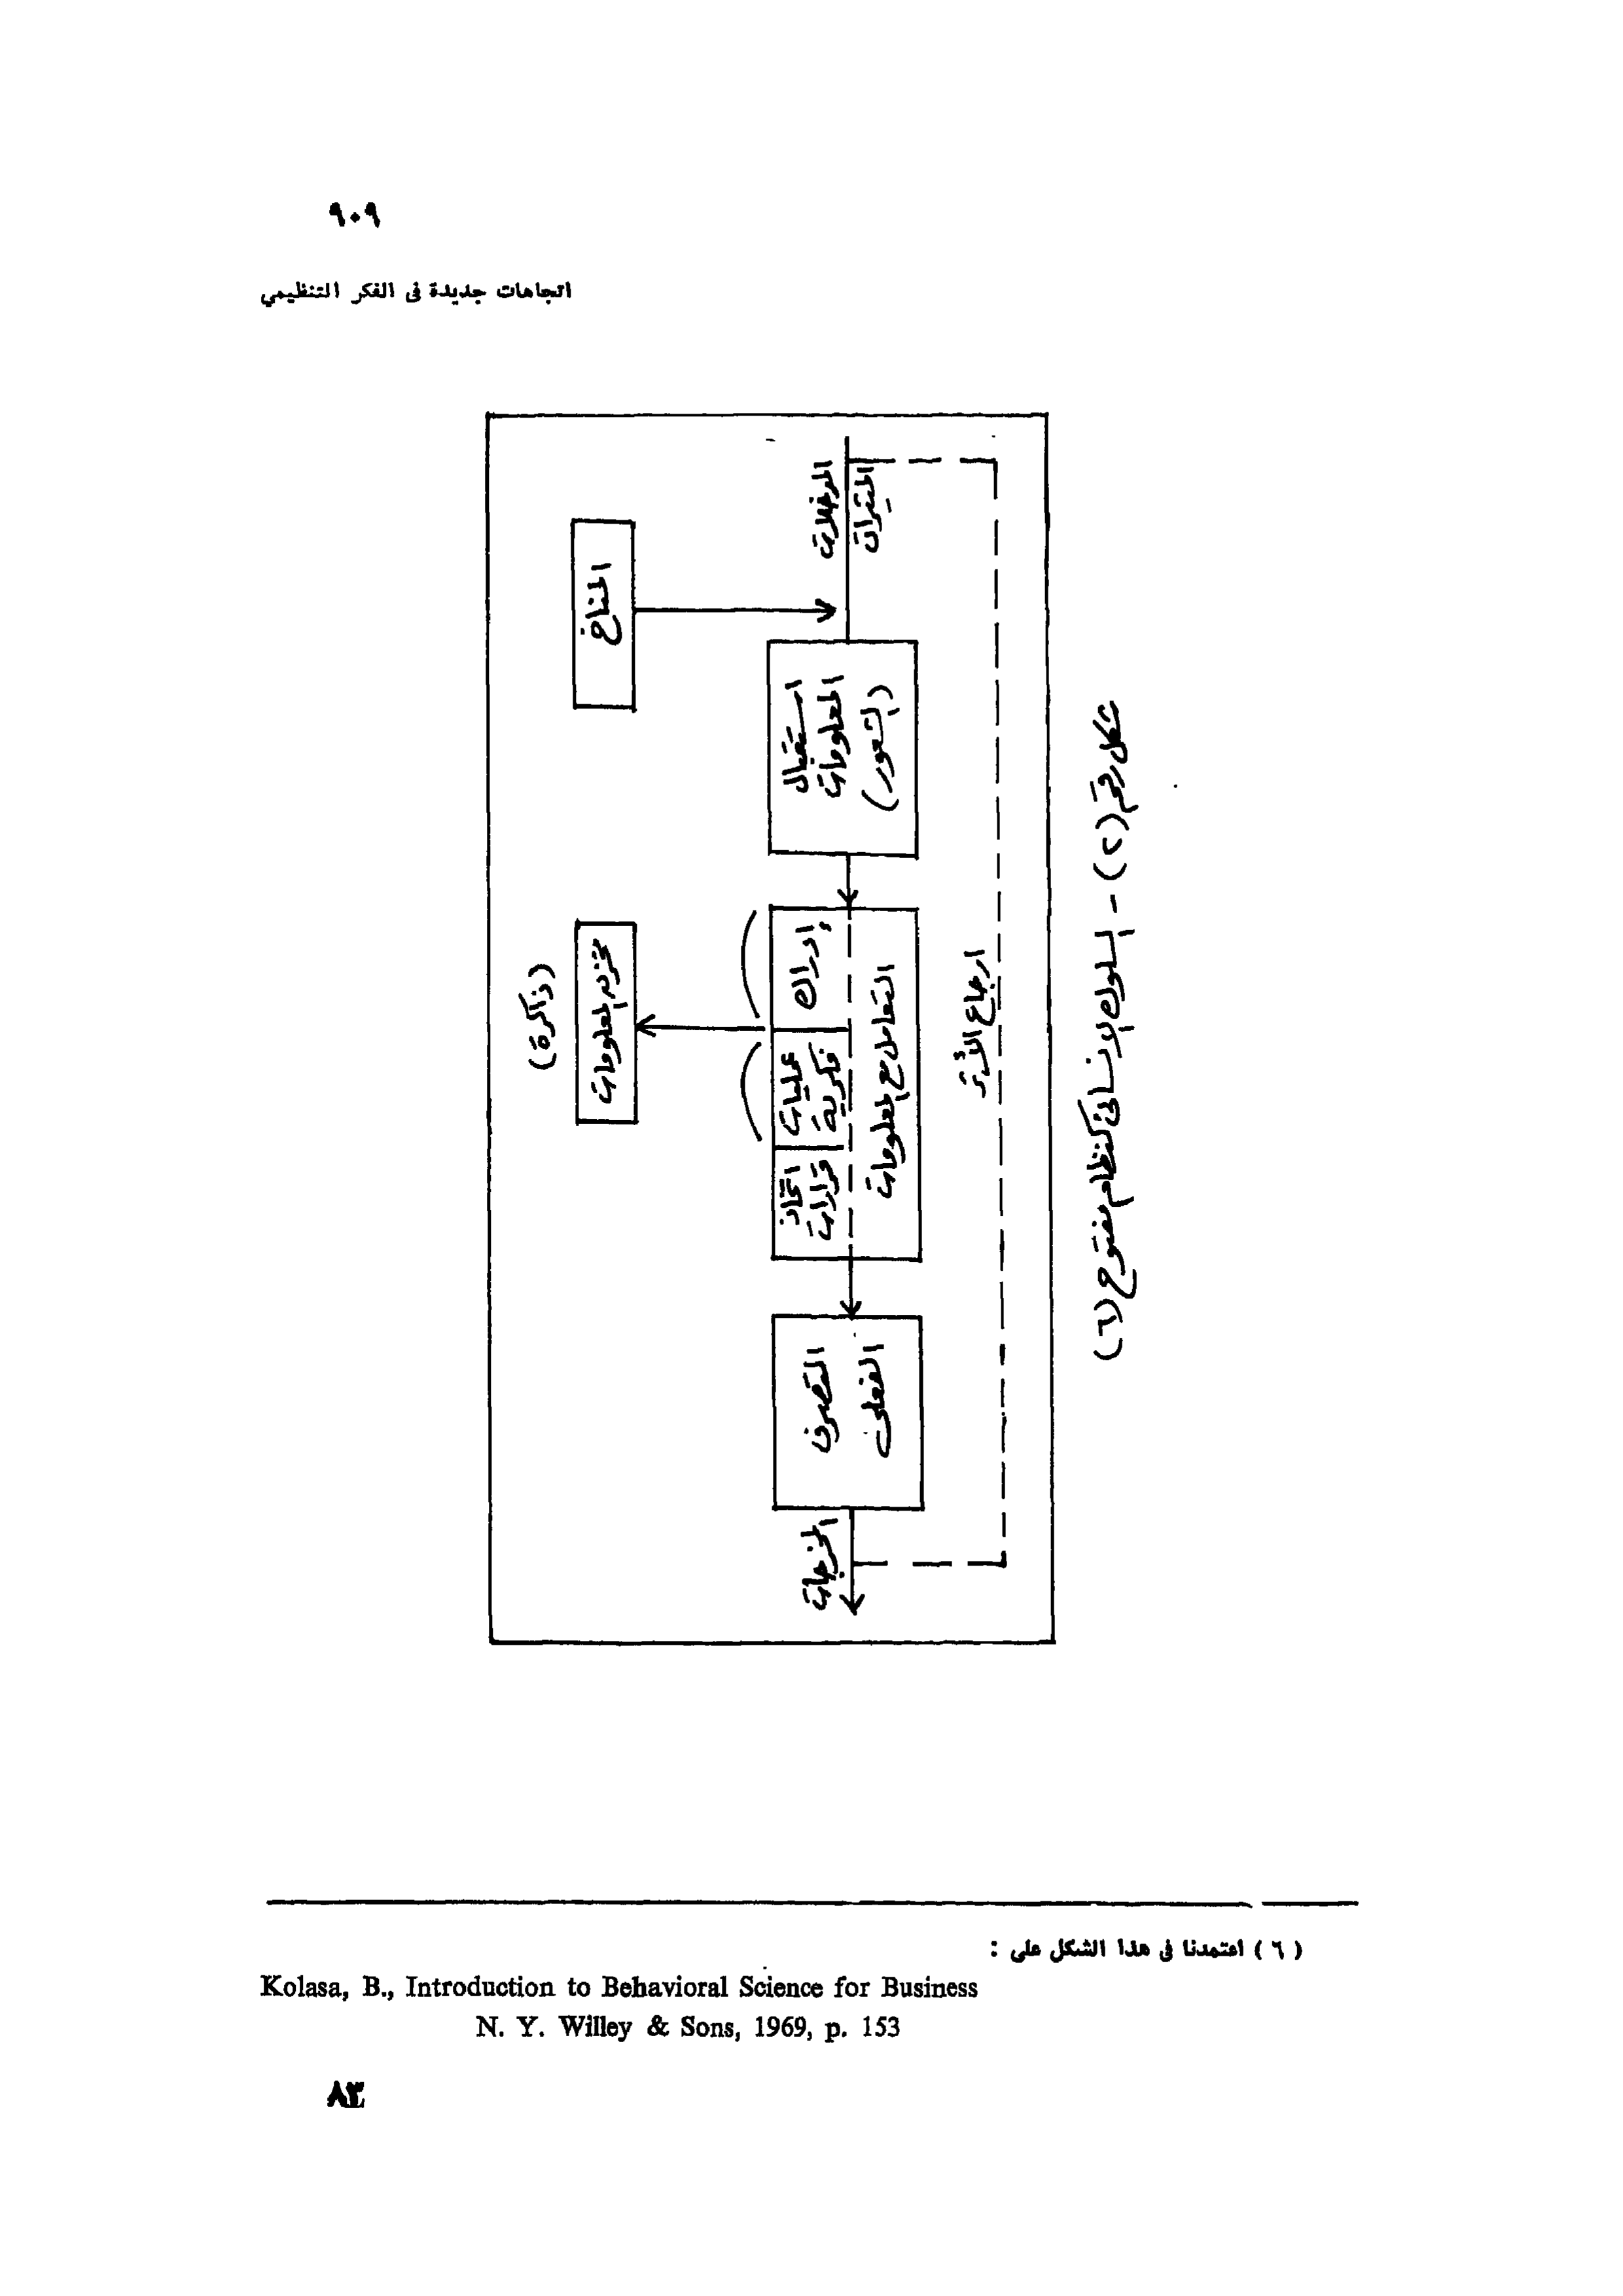 ٩٠٩
اتجاهات جديدة فى الفكر التنظيمي
المدخلات
المثيرات
المناخ
استقبال
المعلومات
(الشعور)
إدراك
عمليات
فكرية
اتخاذ
قرارات
التعامل مع المعلومات
مخزن المعلومات
(ذاكرة)
التصرف
الفعلى
المخرجات
ارجاع الأثر
شكل رقم (٢) - السلوك الإنسانى كنظام مفتوح (٦)
( ٦ ) اعتمدنا فى هذا الشكل على :
Kolasa, B., Introduction to Behavioral Science for Business
N. Y. Willey & Sons, 1969, p. 153
٨٣